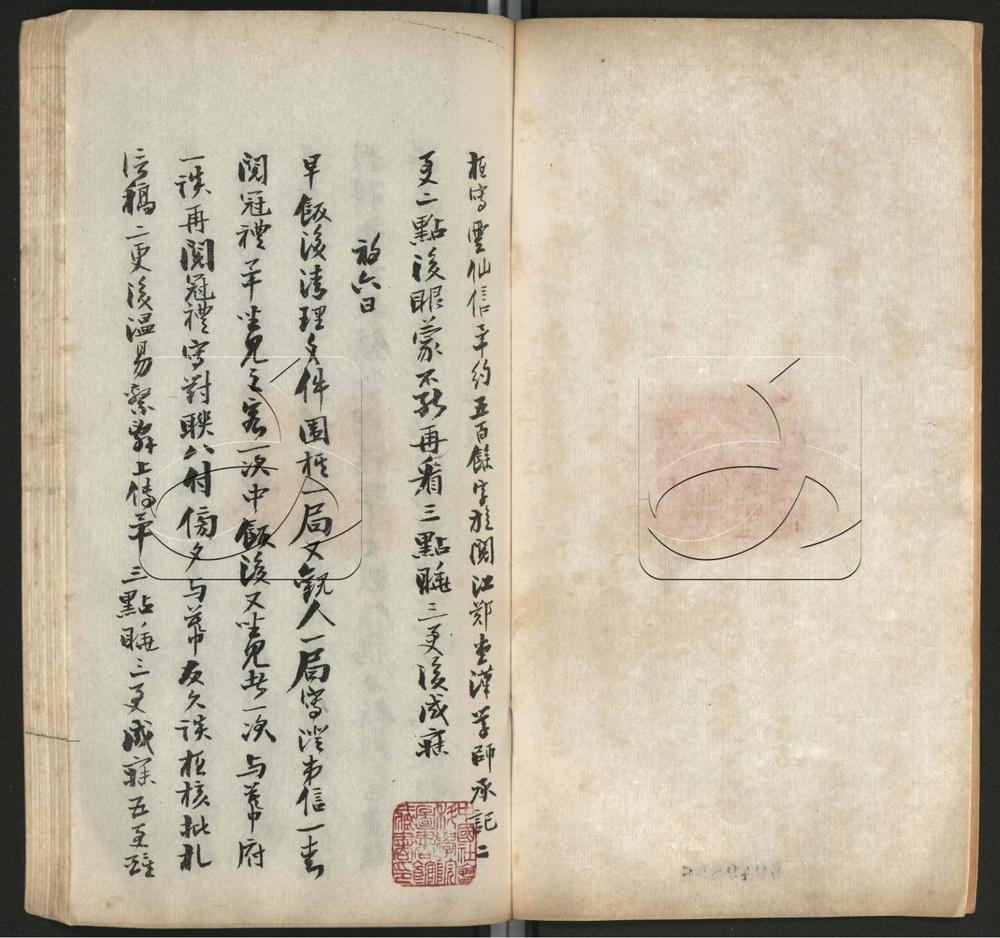 夜寫雲仙信畢約五百餘字於閱江鄭堂漢學師承記二
更二點後眼蒙不能再看三點睡三更後成寐
初六日
早飯後清理文件圍棋一局又觀人一局寫澄弟信一封
閱冠禮畢坐見之客一次中飯後又坐見者一次與幕府
一談再閱冠禮寫對聯八付傍夕與幕友久談夜核批札
信稿二更後溫易繫辭上傳畢三點睡三更成寐五更醒